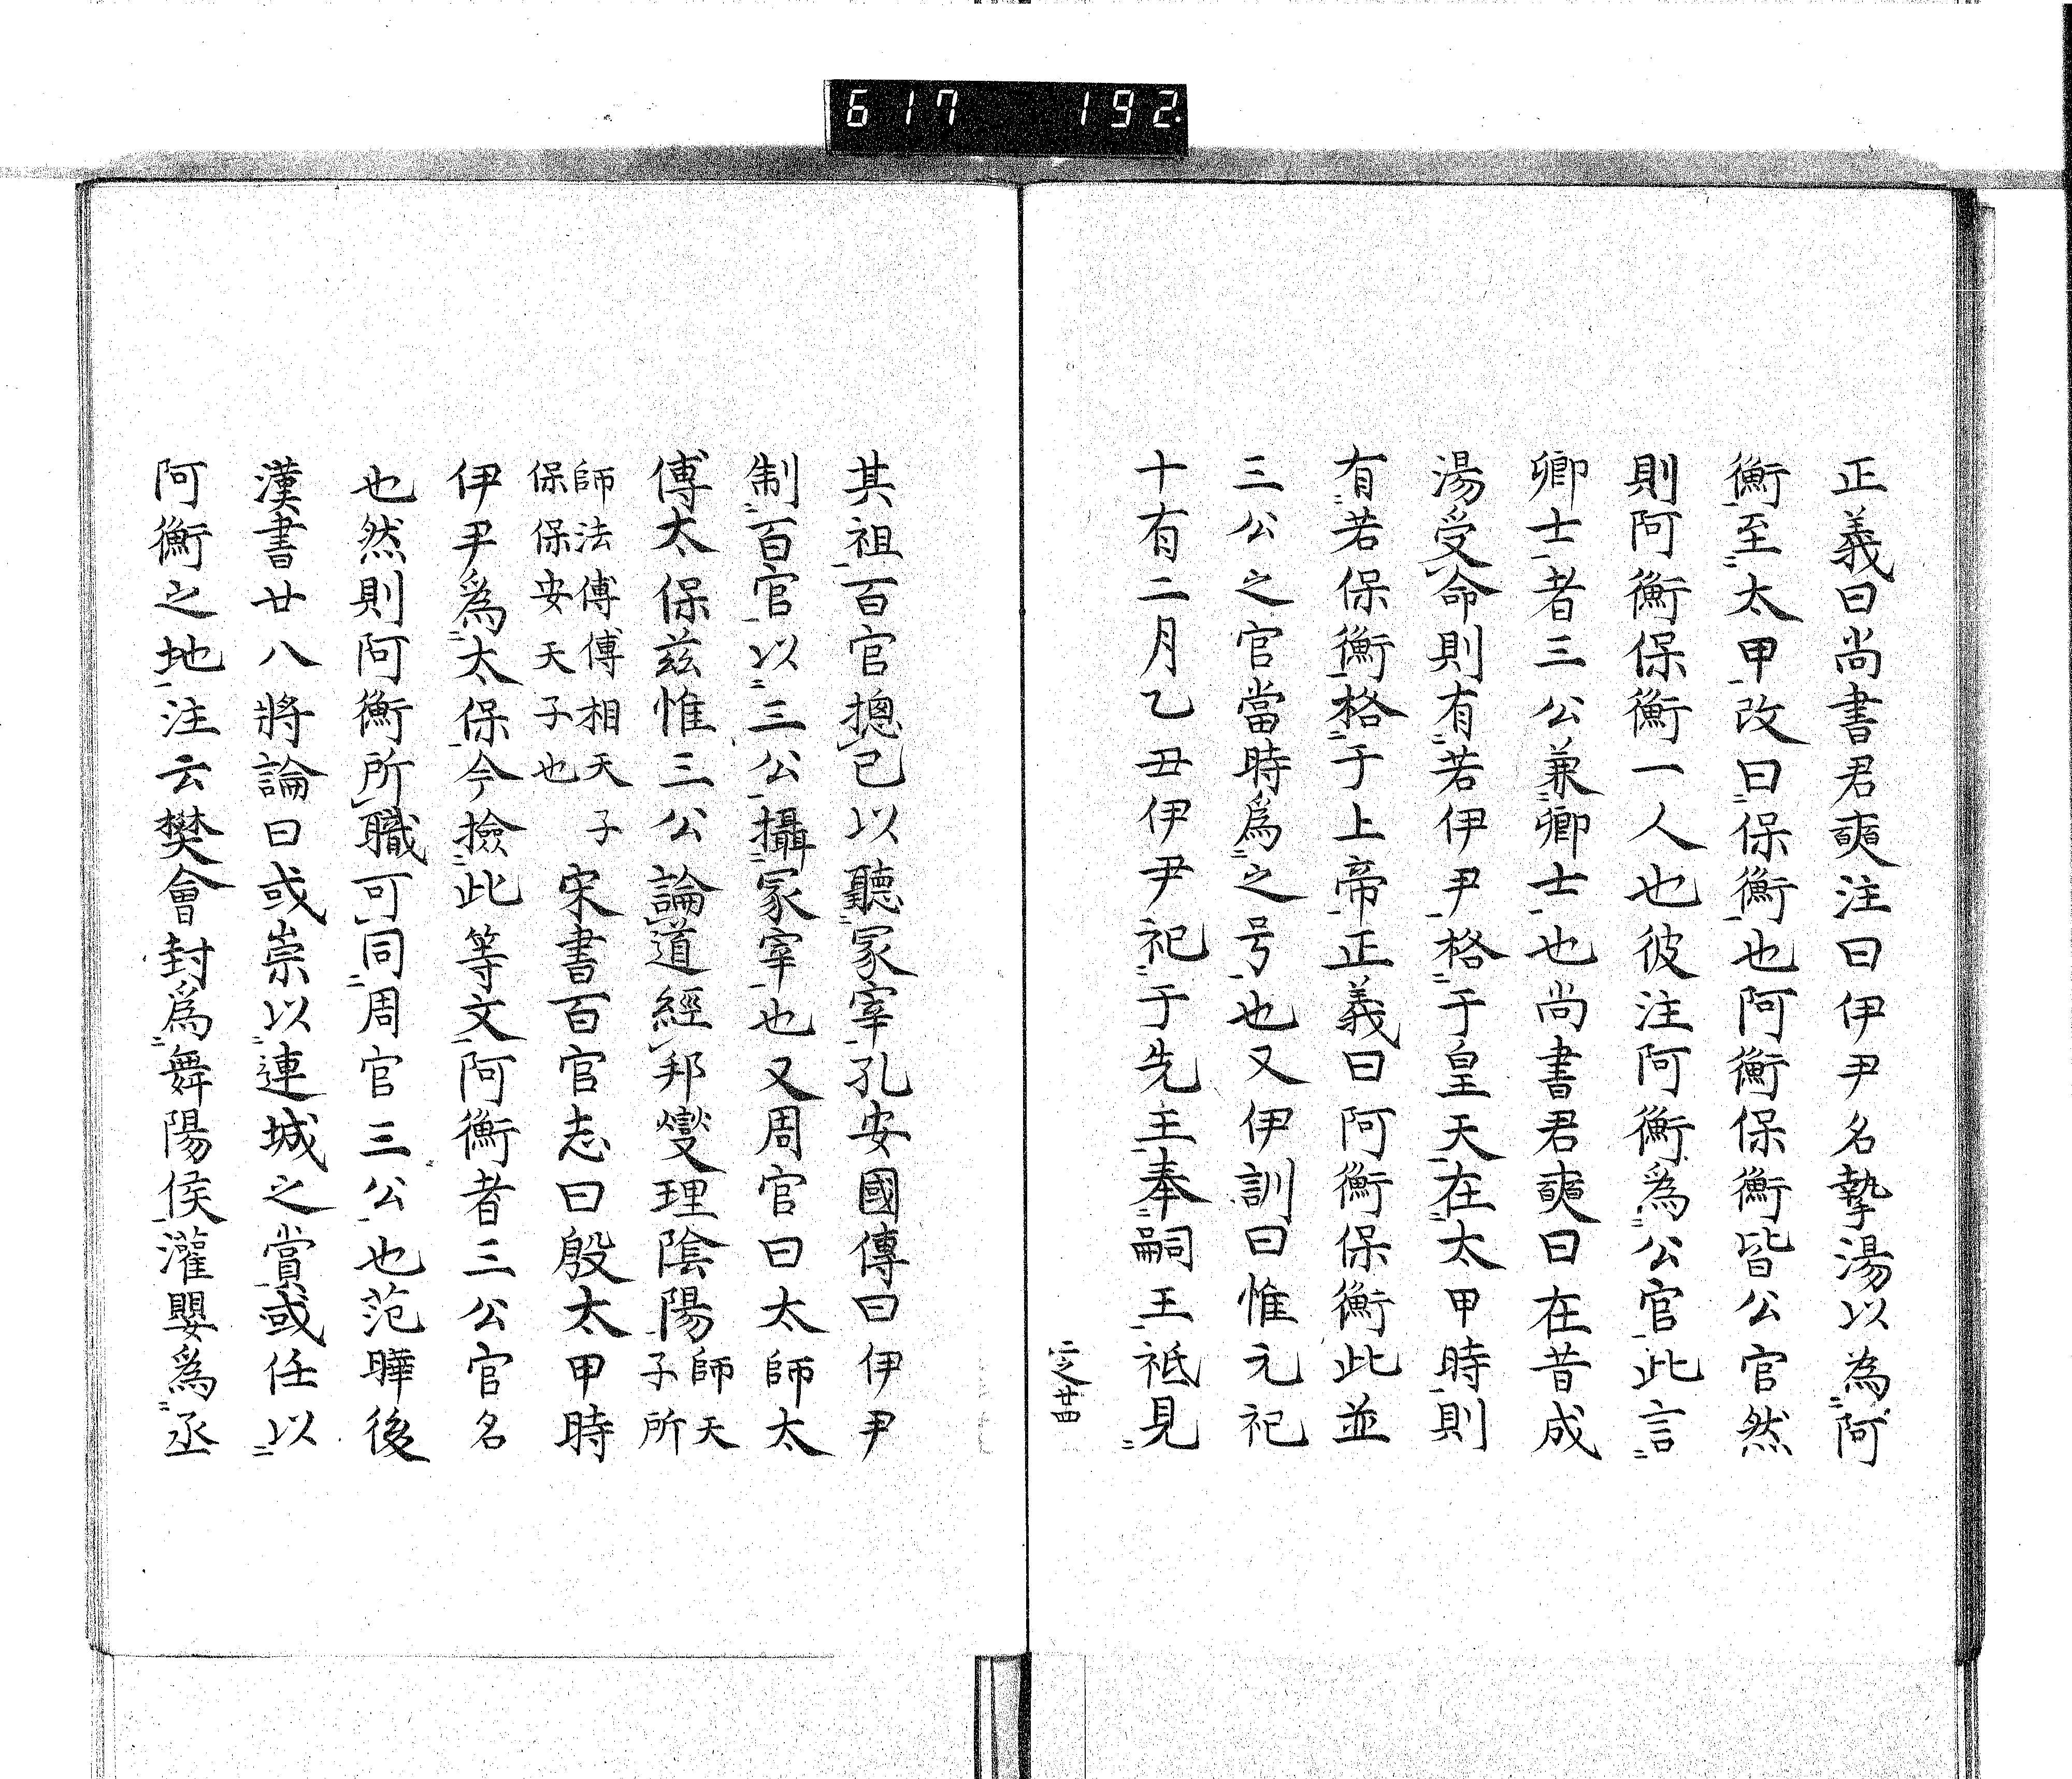 617 192
正義曰尚書君奭注曰伊尹名摯湯以為阿
衡至太甲改曰保衡也阿衡保衡皆公官然
則阿衡保衡一人也彼注阿衡爲公官此言
卿士者三公兼卿士也尚書君奭曰在昔成
湯受命則有若伊尹格于皇天在太甲時則
有若保衡格于上帝正義曰阿衡保衡此並
三公之官當時爲之号也又伊訓曰惟元祀
十有二月乙丑伊尹祀于先主奉嗣王祗見
二之廿四
其祖百官摠己以聽冢宰孔安國傳曰伊尹
制百官以三公攝冢宰也又周官曰太師太
傅太保茲惟三公論道經邦燮理陰陽師天子所
師法傅傅相天子保保安天子也宋書百官志曰殷太甲時
伊尹爲太保今撿此等文阿衡者三公官名
也然則阿衡所職可同周官三公也范曄後
漢書廿八將論曰或崇以連城之賞或任以
阿衡之地注云樊會封爲舞陽侯灌嬰爲丞